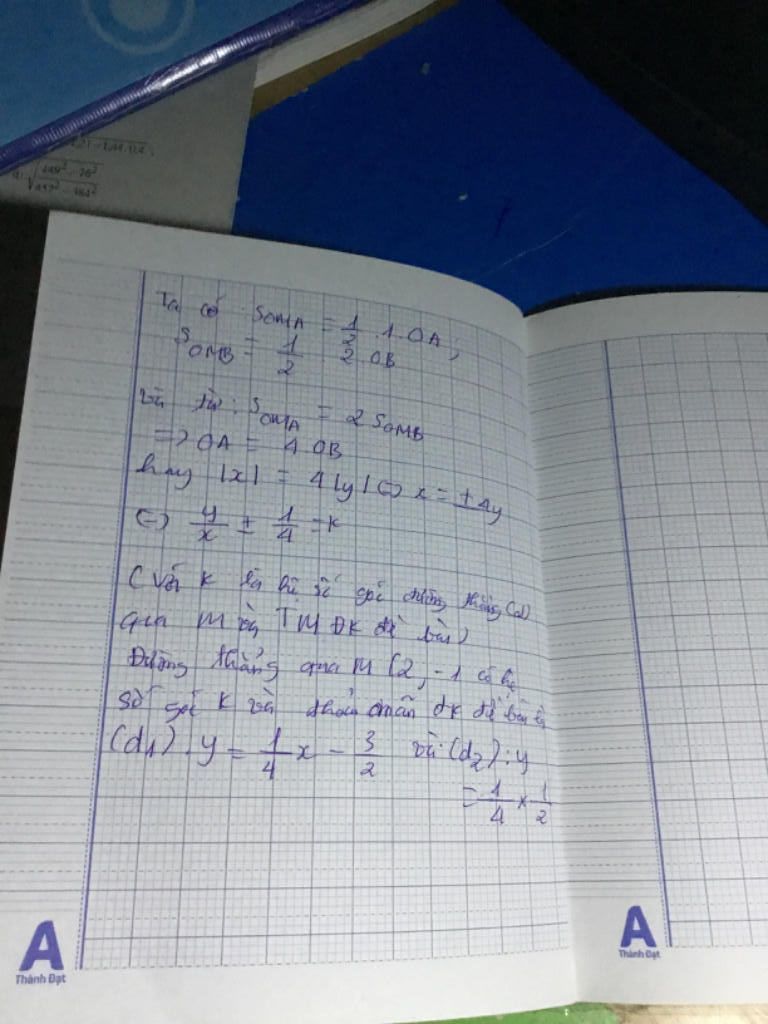 Ta có S_OMA = 1/2 . 1. OA ;
S_OMB = 1/2 2 OB
và từ : S_OMA = 2 S_OMB
=> OA = 4 OB
hay |x| = 4|y| <=> x = ± 4y
<=> y/x ± 1/4 = k
(với k là hệ số góc đường thẳng (d)
qua M và TMĐK đề bài)
Đường thẳng qua M (2, -1 có hệ
số góc k và thỏa mãn đk đề bài là
(d1) . y = 1/4 x - 3/2 và (d2) : y
= 1/4 x 1/2
A
Thành Đạt
A
Thành Đạt